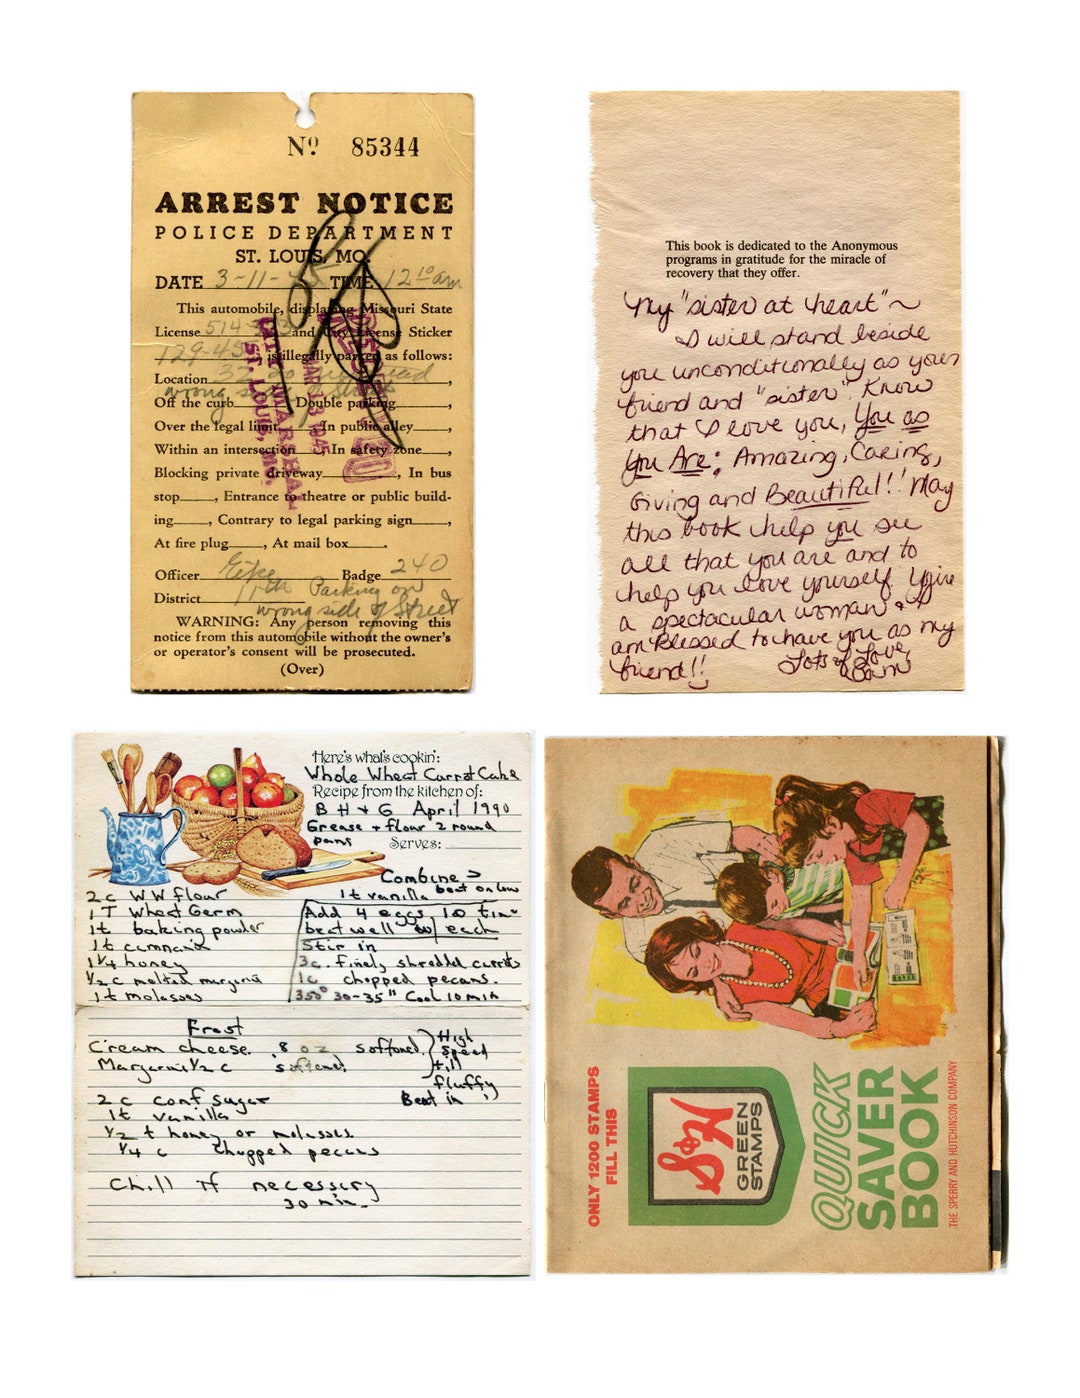 Nº 85344
ARREST NOTICE
POLICE DEPARTMENT
ST. LOUIS, MO.
DATE 3-11-45 TIME 12 10 am
This automobile, displaying Missouri State
License 514- and City License Sticker
129-45 is illegally parked as follows:
Location
wrong side of Street
Off the curb , Double parking ,
Over the legal limit , In public alley ,
Within an intersection , In safety zone ,
Blocking private driveway , In bus
stop , Entrance to theatre or public build-
ing , Contrary to legal parking sign ,
At fire plug , At mail box .
Officer Badge 240
District 11th Parking on
wrong side of Street
WARNING: Any person removing this
notice from this automobile without the owner's
or operator's consent will be prosecuted.
(Over)
CITY MARSHAL
ST. LOUIS, MO.
MAR 13 1945
This book is dedicated to the Anonymous
programs in gratitude for the miracle of
recovery that they offer.
My "sister at heart" ~
I will stand beside
you unconditionally as your
friend and "sister". Know
that I love you, You as
You Are: Amazing, Caring,
Giving and Beautiful!! May
this book help you see
all that you are and to
help you love yourself. You're
a spectacular woman & I
am Blessed to have you as my
friend!!
Lots of Love,
Here's what's cookin':
Whole Wheat Carrot Cake
Recipe from the kitchen of:
B H & G April 1990
Grease + flour 2 round
pans Serves:
Combine >
beat on low
2 c WW flour
1 T Wheat Germ
1 t baking powder
1 t cinnamin
1 1/4 honey
1/2 c melted margarine
1 t molasses
1 t vanilla
Add 4 eggs 1 @ time
beat well w/ each
Stir in
3 c. finely shredded carrots
1 c chopped pecans.
350° 30-35" Cool 10 min
Frost
Cream cheese 8 oz softened
Margarine 1/2 c softened
High
speed
till
fluffy
2 c conf sugar Beat in
1 t vanilla
1/2 t honey or molasses
1/4 c chopped pecans
Chill if necessary
30 min.
ONLY 1200 STAMPS
FILL THIS
S&H
GREEN
STAMPS
QUICK
SAVER
BOOK
THE SPERRY AND HUTCHINSON COMPANY